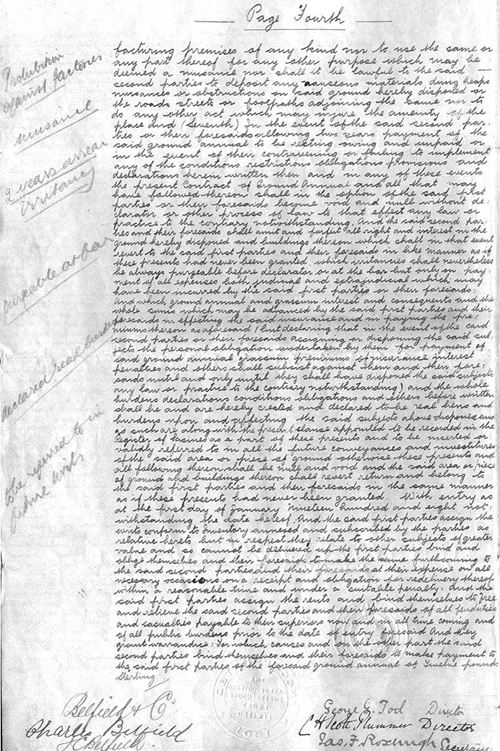 Page Fourth
facturing premises of any kind nor to use the same or
any part thereof for any other purpose which may be
deemed a nuisance nor shall it be lawful to the said
second parties to deposit any nauseous materials dung heaps
nuisances or obstructions on said ground hereby disponed or
the roads streets or footpaths adjoining the same nor to
do any other act which may injure the amenity of the
place And (Seventh) In the event of the said second par-
ties or their foresaids allowing two years payment of the
said ground annual to be resting owing and unpaid or
in the event of their contravening or failing to implement
any of the conditions restrictions obligations provisions and
declarations herein written then and in any of these events
the present Contract of Ground Annual and all that may
have followed thereon shall in the option of the said first
parties or their foresaids become void and null without de-
clarator or other process of law to that effect any law or
practice to the contrary notwithstanding And the said second par-
ties and their foresaids shall amit and forfeit all right and interest in the
ground hereby disponed and buildings thereon which shall in that event
revert to the said first parties and their foresaids in like manner as if
these presents had never been granted which irritancies shall nevertheless
be always purgeable before declarator or at the bar but only on pay-
ment of all expenses both judicial and extrajudicial which may
have been incurred by the said first parties or their foresaids
And which ground annual and grassum interest and consequents and the
whole sums which may be advanced by the said first parties and their
foresaids in effecting the said insurance and in paying the pre-
miums thereon as aforesaid (but declaring that in the event of the said
second parties or their foresaids assigning or disposing the said sub-
jects the personal obligation undertaken by them for payment of
said ground annual grassum premiums of insurance interest
penalties and others shall subsist against them and their fore-
saids until and only until they shall have disponed the said subjects
any law or practice to the contrary notwithstanding) and the whole
burdens declarations conditions obligations and others before written
shall be and are hereby created and declared to be real liens and
burdens upon and affecting the said subjects above disponed and
as such are along with the fresh clauses appointed to be recorded in the
Register of Sasines as a part of these presents and to be inserted or
validly referred to in all the future conveyances and investitures
of the said area or piece of ground otherwise these presents and
all following thereon shall be null and void and the said area or piece
of ground and buildings thereon shall revert return and belong to
the said first parties and their foresaids in the same manner
as if these presents had never been granted. With entry as
at the first day of January Nineteen hundred and eight not-
withstanding the date hereof And the said first parties assign the
writs conform to inventory annexed and subscribed by the parties as
relative hereto but in respect they relate to other subjects of greater
value and so cannot be delivered up the first parties bind and
oblige themselves and their foresaids to make the same furthcoming to
the said second parties and their foresaids at their expense on all
necessary occasions on a receipt and obligation for redelivery thereof
within a reasonable time and under a suitable penalty: And the
said first parties assign the rents and bind themselves to free
and relieve the said second parties and their foresaids of all feuduties
and casualties payable to their superiors now and in all time coming and
of all public burdens prior to the date of entry foresaid And they
grant warrandice: For which causes and on the other part the said
second parties bind themselves and their foresaids to make payment to
the said first parties of the foresaid ground annual of Twelve pounds
Sterling
Prohibition
against factories
nuisance
2 years arrear
Irritancy
purgeable at bar
declared real burdens
to be referred to in
future writs
Belfield & Co.
Charles Belfield
J. Belfield
George G. Tod Director
C H Scott Plummer Director
Jas. F. Roxburgh Secretary